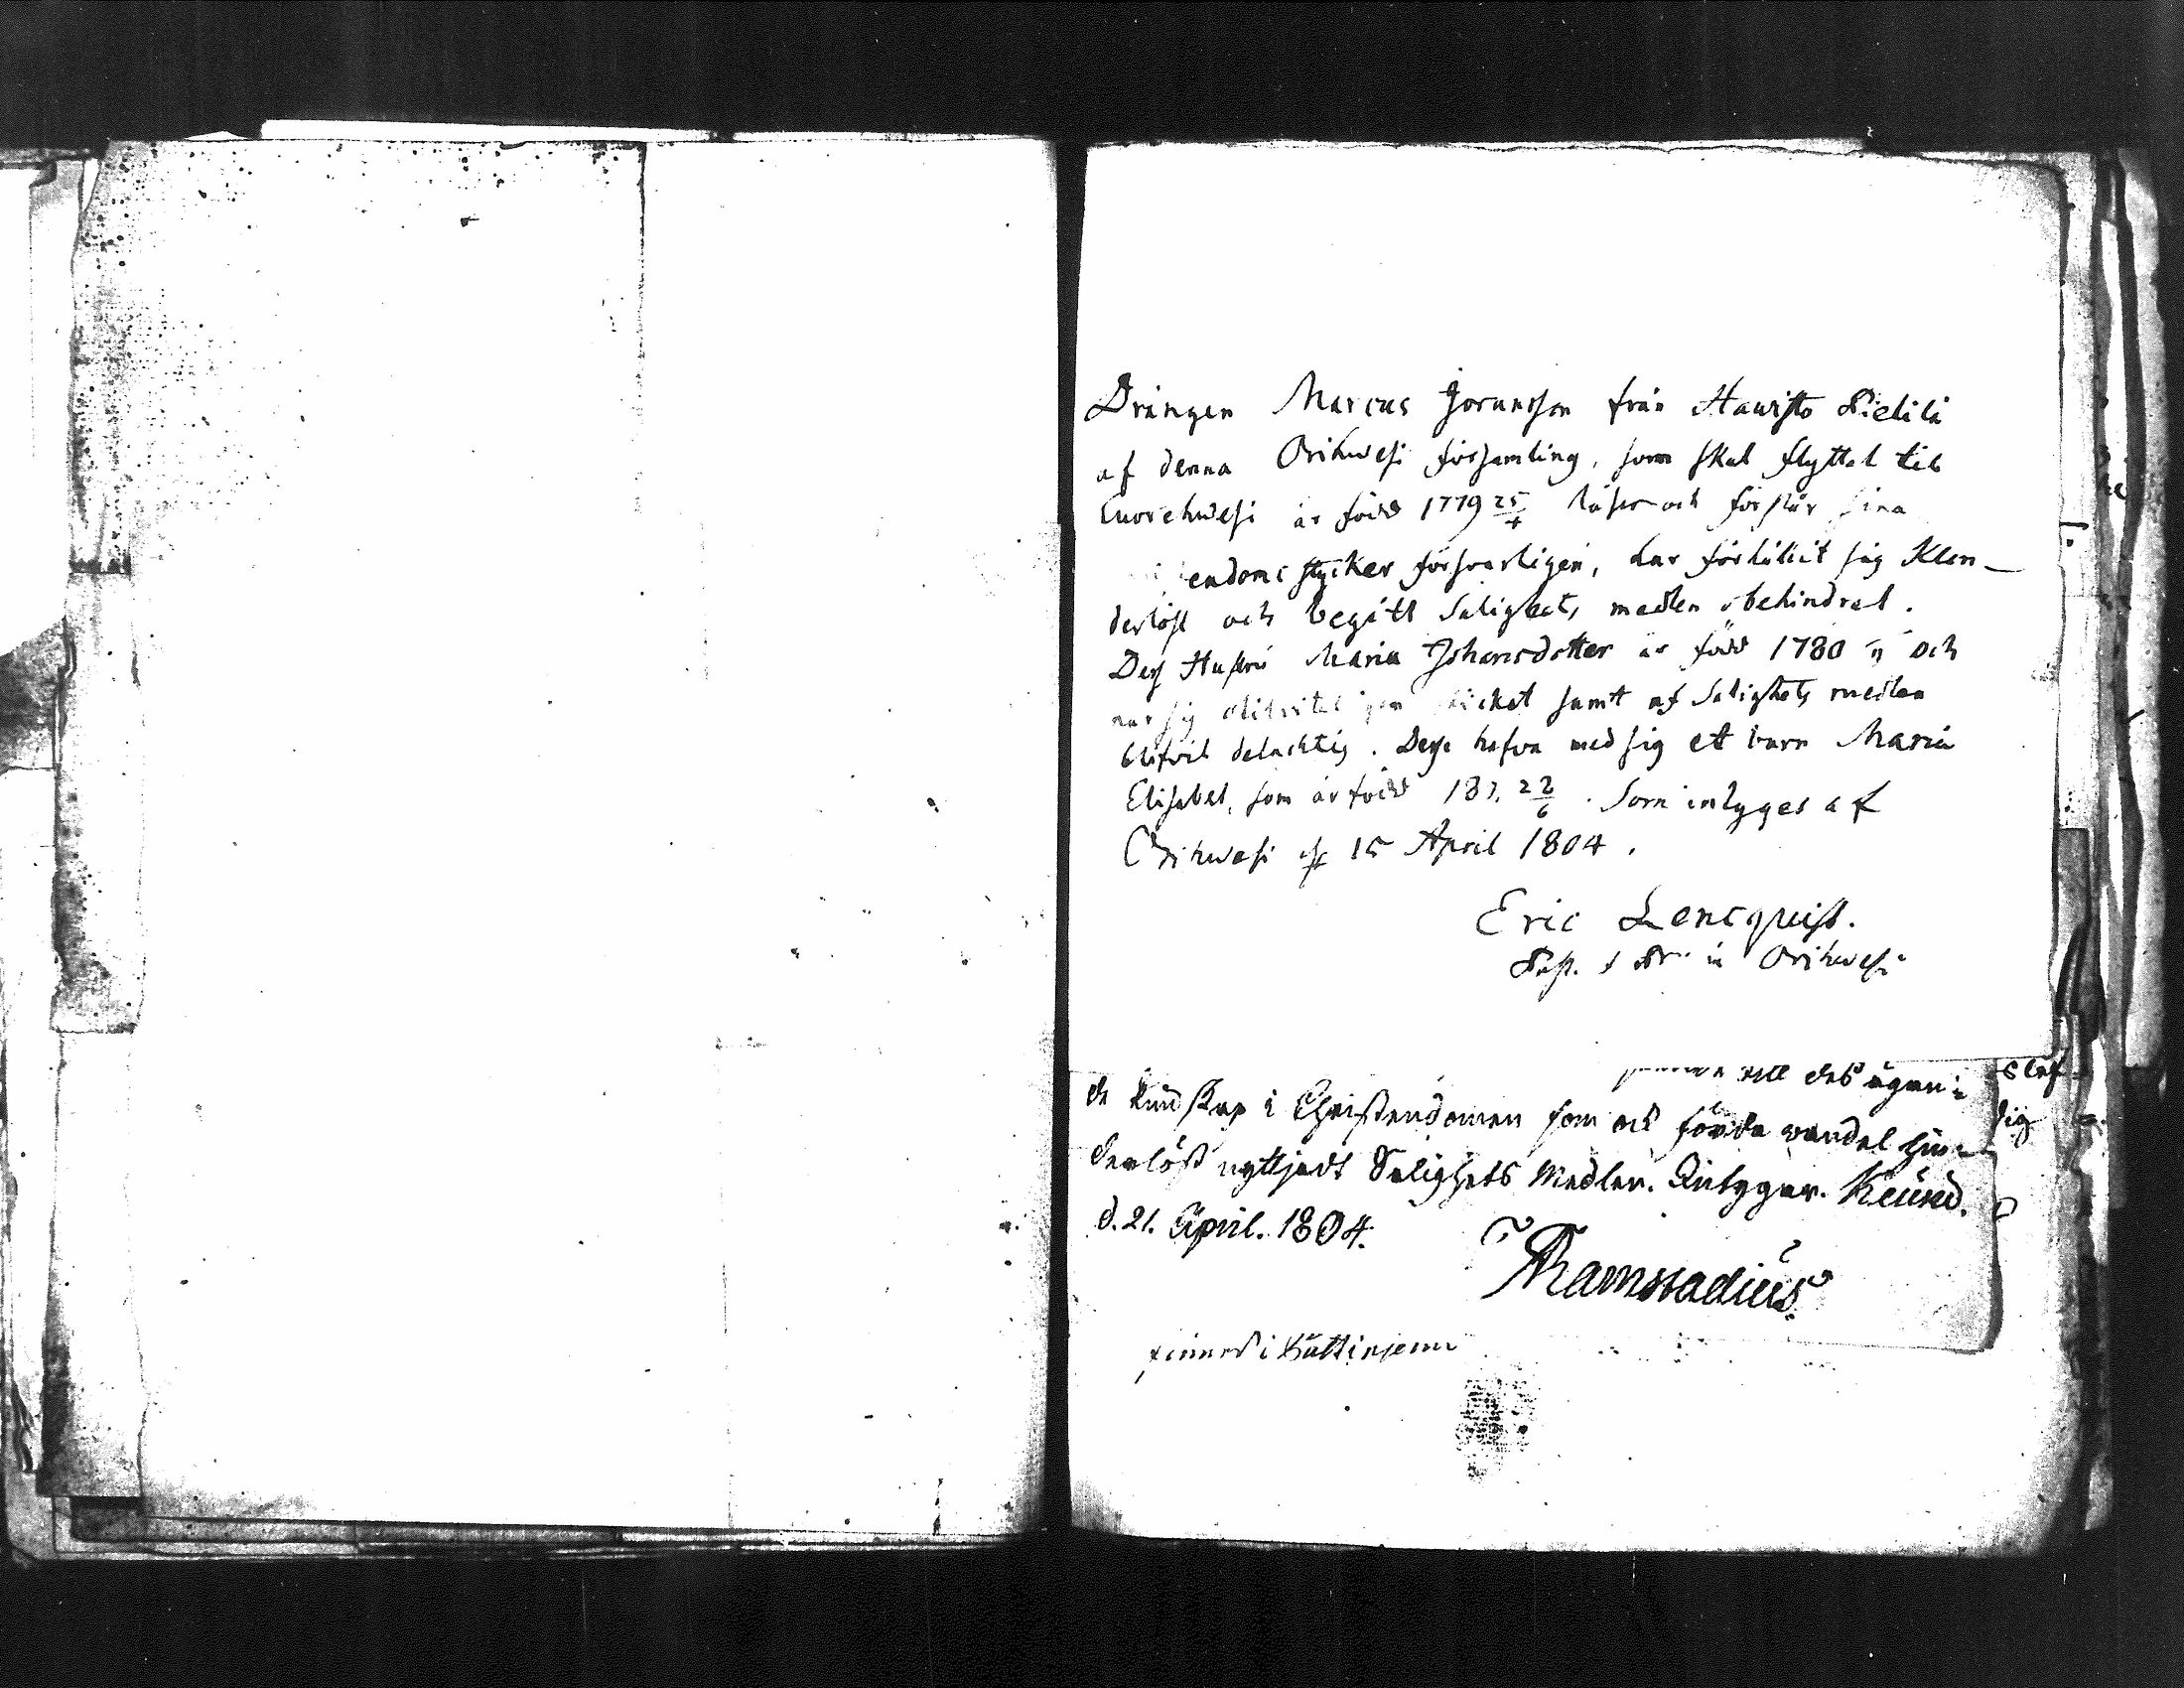 Drängen Marcus Göransson från Hawisto Pietilä
af denna Orihwesi församling, som skal flyttat til
Cuorehwesi är född 1779 25/4 läser och förstår sina
endoms stycker försvarligen, har förhållit sig Klan-
derlöst och begått Salighets medlen obehindrat.
Dess Hustru Maria Johansdotter är född 1780 och
har sig samt af Salighets medlen
blifvit delachtig. Desse hafva med sig et barn Maria
Elisabet, som är född 22/6. Som intyges af
Orihwesi 15 April 1804.
Eric Lencquist.
Past. i Orihwesi
till des ägan-
de Kundskap i Christendomen som ock förda wandel hin-
derlöst nyttjadt Salighets Medlen. Intygar. Keurud.
d. 21. April. 1804.
Thamstadius
sig
finnes i Hättinjemi